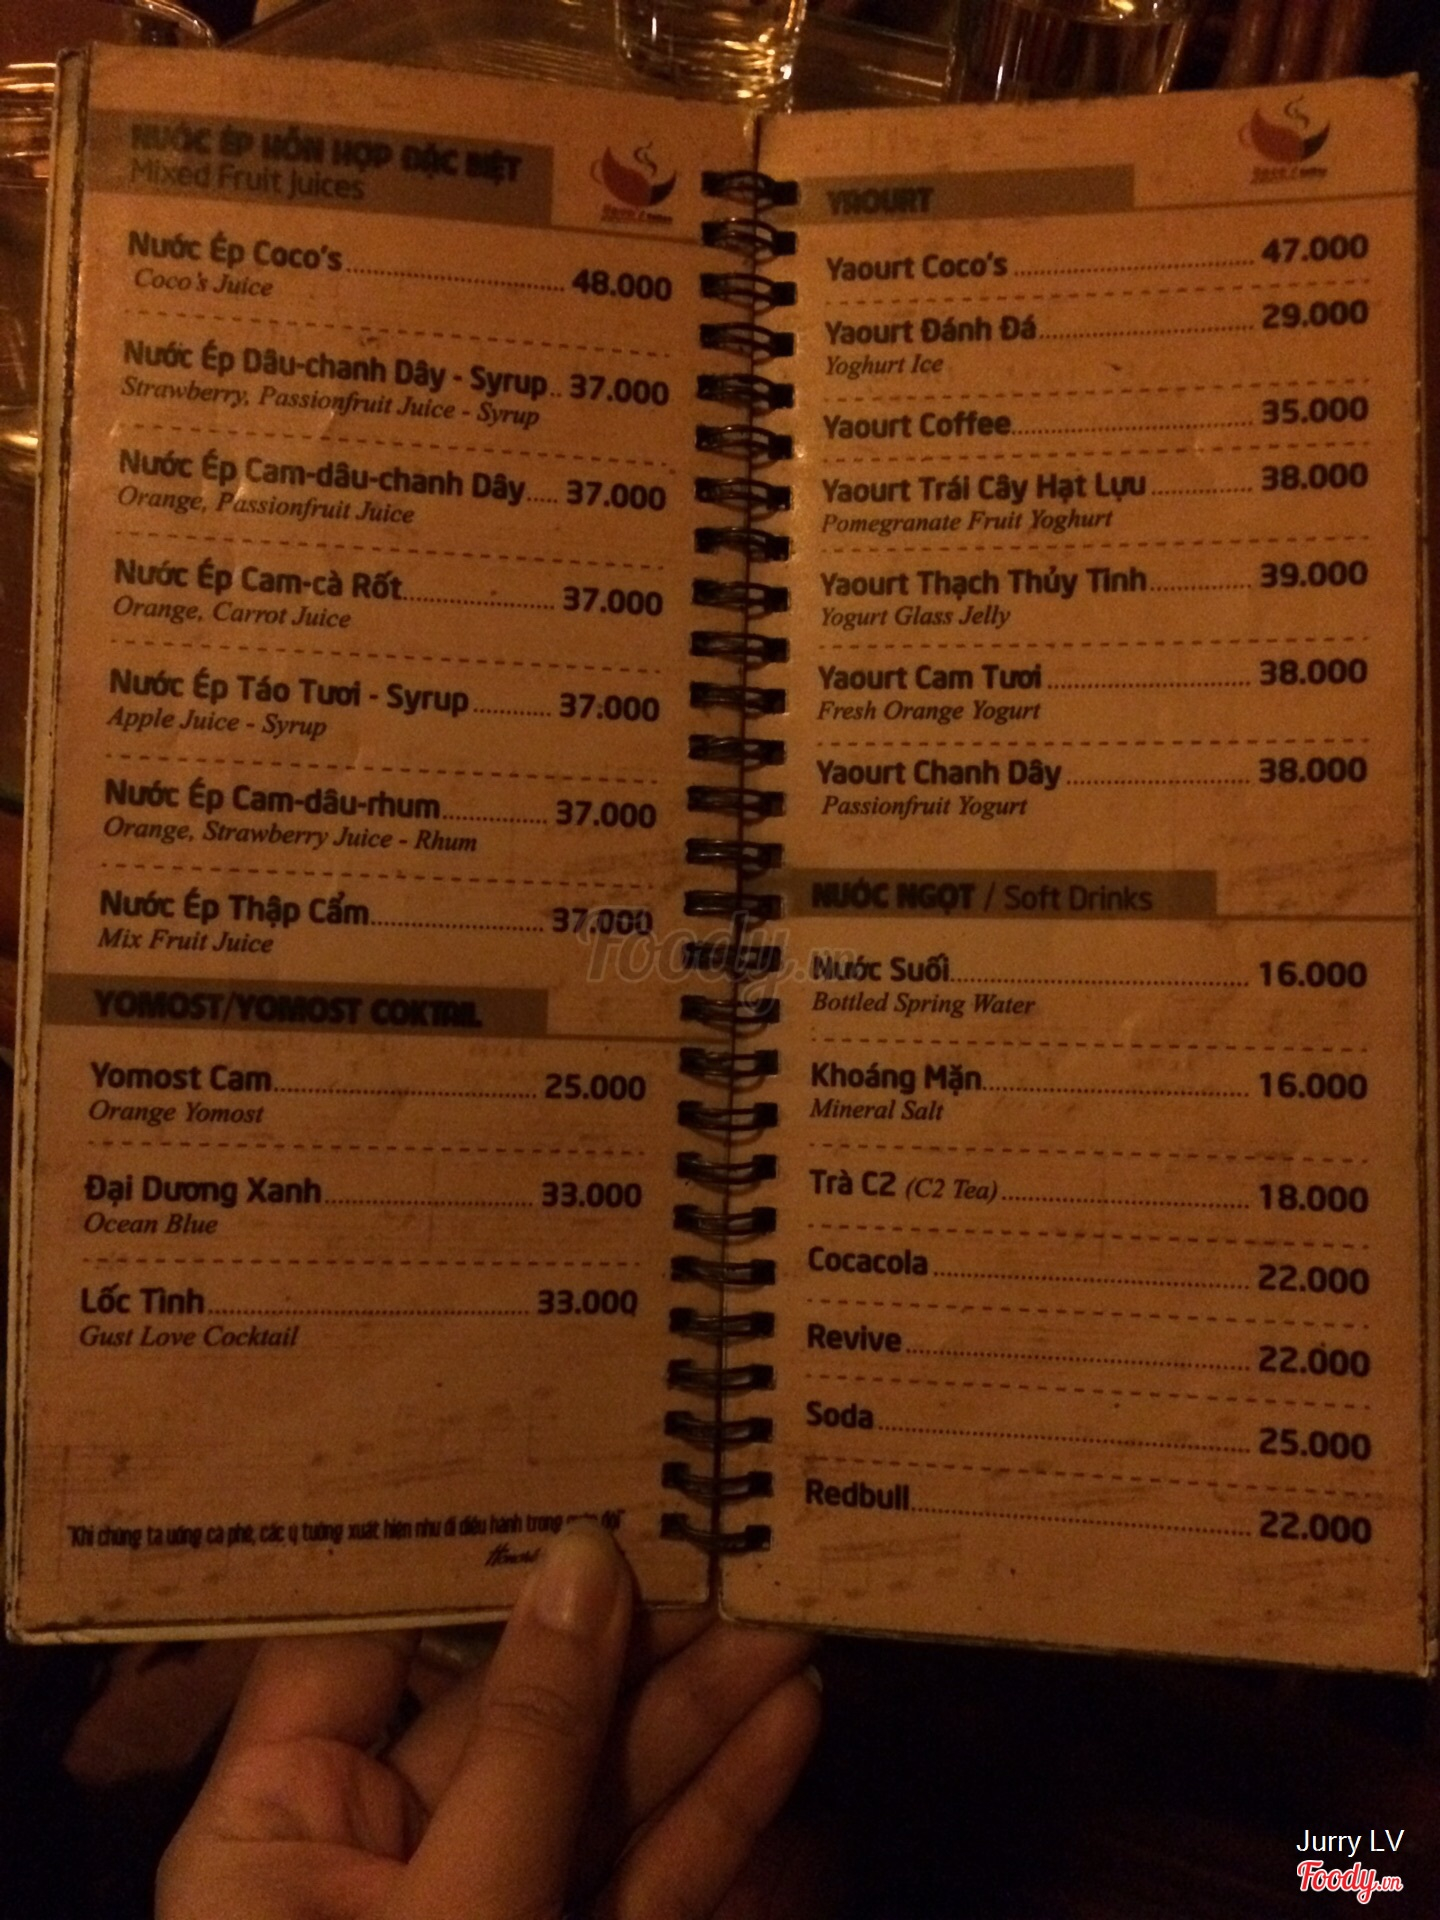 NƯỚC ÉP HỖN HỢP ĐẶC BIỆT
Mixed Fruit Juices
Nước Ép Coco's 48.000
Coco's Juice
Nước Ép Dâu-chanh Dây - Syrup 37.000
Strawberry, Passionfruit Juice - Syrup
Nước Ép Cam-dâu-chanh Dây 37.000
Orange, Passionfruit Juice
Nước Ép Cam-cà Rốt 37.000
Orange, Carrot Juice
Nước Ép Táo Tươi - Syrup 37.000
Apple Juice - Syrup
Nước Ép Cam-dâu-rhum 37.000
Orange, Strawberry Juice - Rhum
Nước Ép Thập Cẩm 37.000
Mix Fruit Juice
YOMOST/YOMOST COKTAIL
Yomost Cam 25.000
Orange Yomost
Đại Dương Xanh 33.000
Ocean Blue
Lốc Tình 33.000
Gust Love Cocktail
"Khi chúng ta uống cà phê, các ý tưởng xuất hiện như đi diễu hành trong quân đội"
YAOURT
Yaourt Coco's 47.000
Yaourt Đánh Đá 29.000
Yoghurt Ice
Yaourt Coffee 35.000
Yaourt Trái Cây Hạt Lựu 38.000
Pomegranate Fruit Yoghurt
Yaourt Thạch Thủy Tinh 39.000
Yogurt Glass Jelly
Yaourt Cam Tươi 38.000
Fresh Orange Yogurt
Yaourt Chanh Dây 38.000
Passionfruit Yogurt
NƯỚC NGỌT / Soft Drinks
Nước Suối 16.000
Bottled Spring Water
Khoáng Mặn 16.000
Mineral Salt
Trà C2 (C2 Tea) 18.000
Cocacola 22.000
Revive 22.000
Soda 25.000
Redbull 22.000
Foody.vn
Jurry LV
Foody.vn